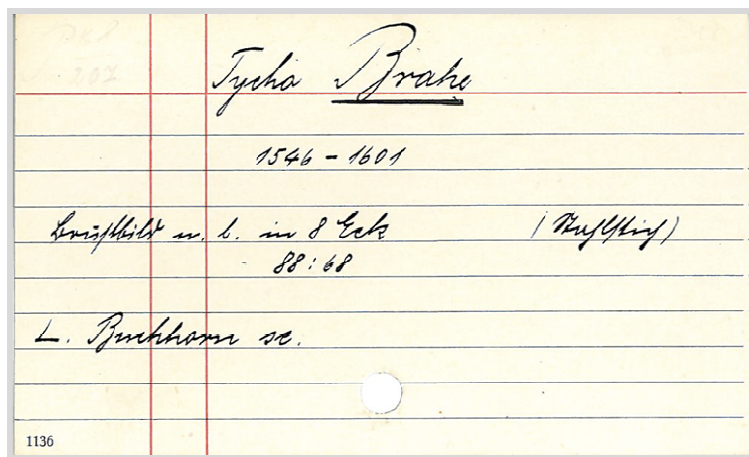 Tycho Brahe
1546 - 1601
Brustbild n. l. in 8 Eck (Stahlstich)
88:68
L. Buchhorn sc.
1136